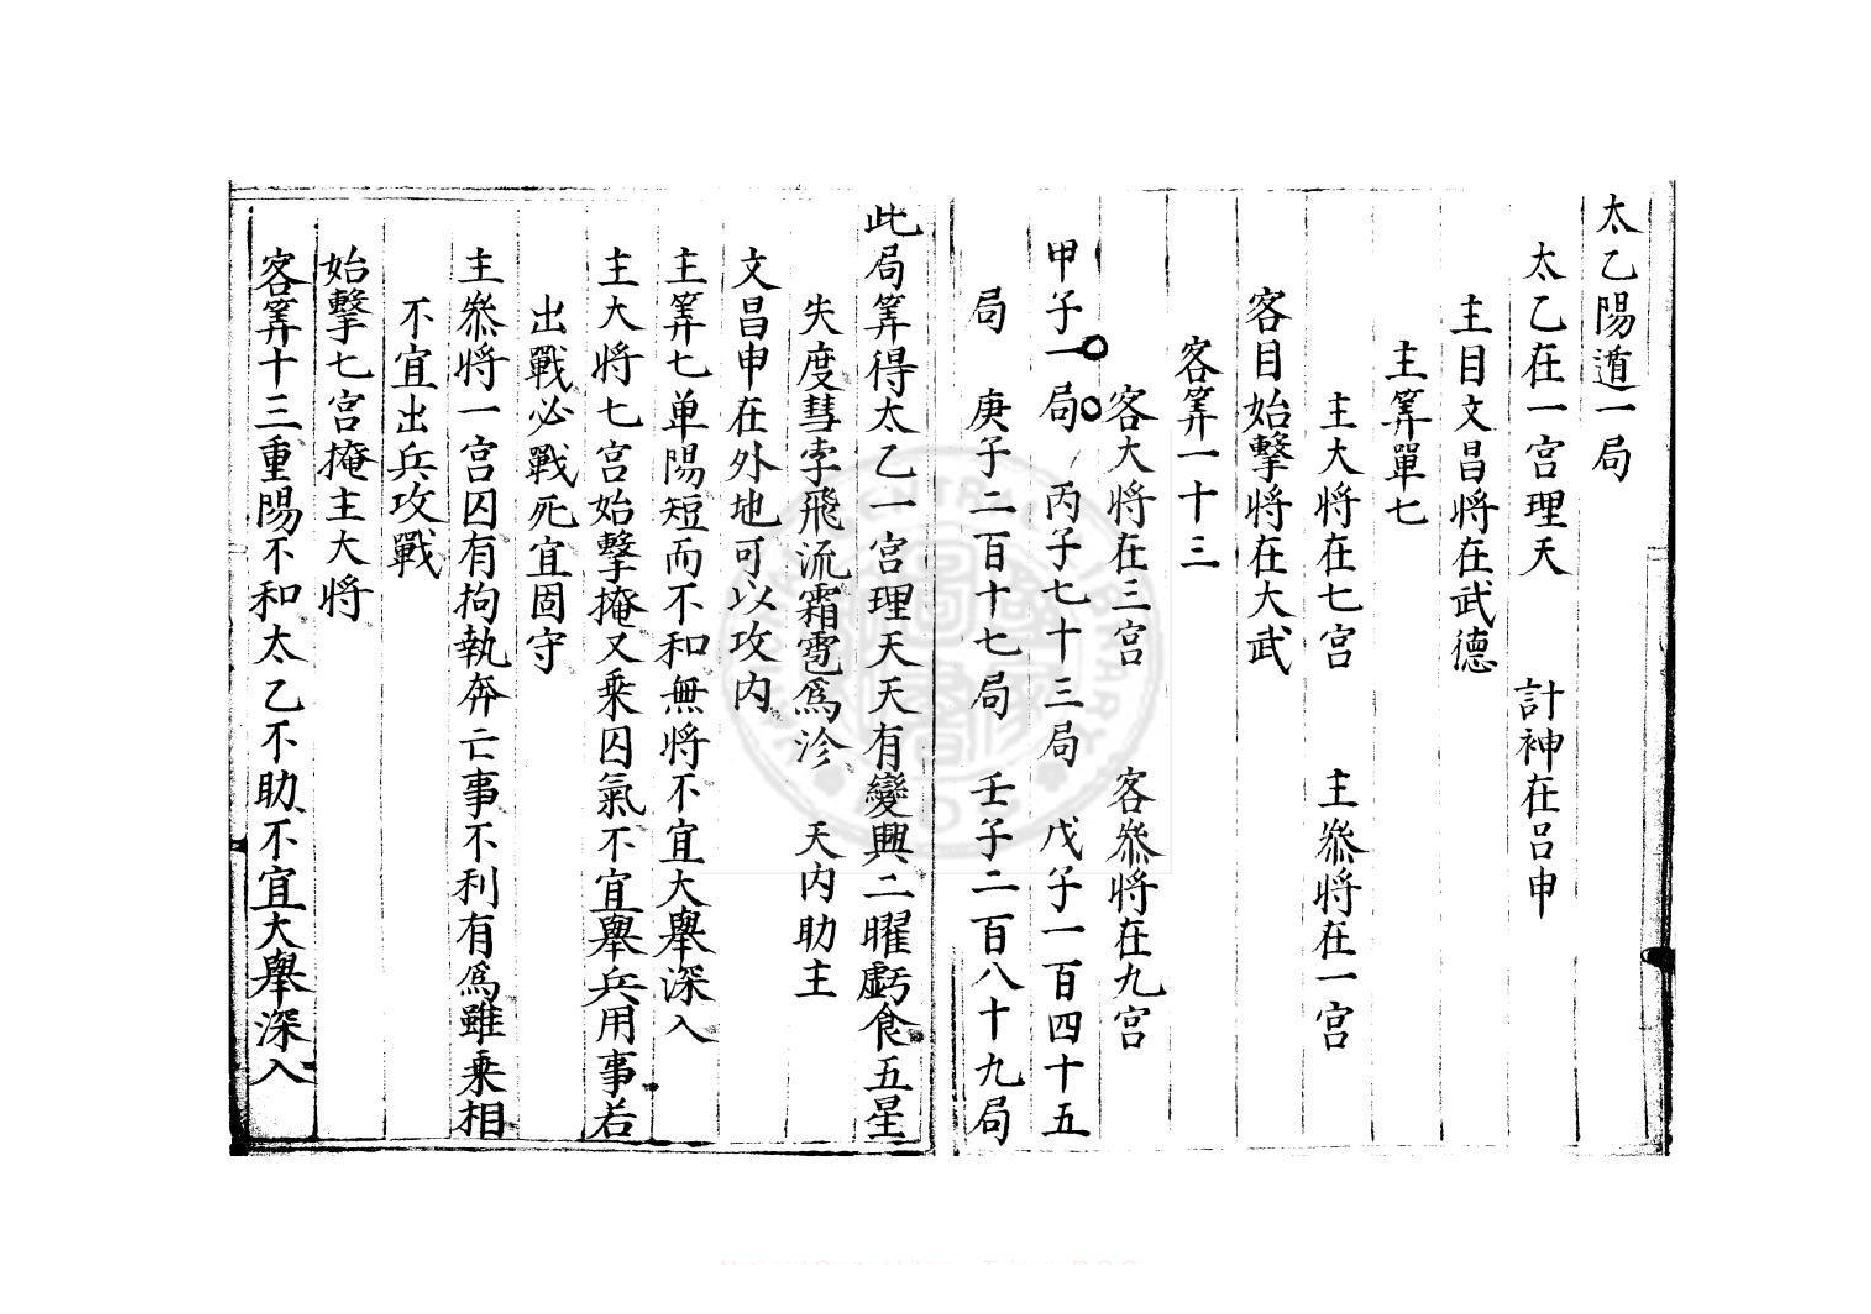 太乙陽遁一局
太乙在一宮理天　計神在呂申
主目文昌將在武德
主筭單七
主大將在七宮　主叅將在一宮
客目始擊將在大武
客筭一十三
客大將在三宮　客叅將在九宮
甲子一局　丙子七十三局　戊子一百四十五
局　庚子二百十七局　壬子二百八十九局
此局筭得太乙一宮理天天有變興二曜虧食五星
失度彗孛飛流霜雹爲沴　天內助主
文昌申在外地可以攻內
主筭七单陽短而不和無將不宜大舉深入
主大將七宮始擊掩又乘囚氣不宜舉兵用事若
出戰必戰死宜固守
主叅將一宮囚有拘執奔亡事不利有爲雖乘相
不宜出兵攻戰
始擊七宮掩主大將
客筭十三重陽不和太乙不助不宜大舉深入